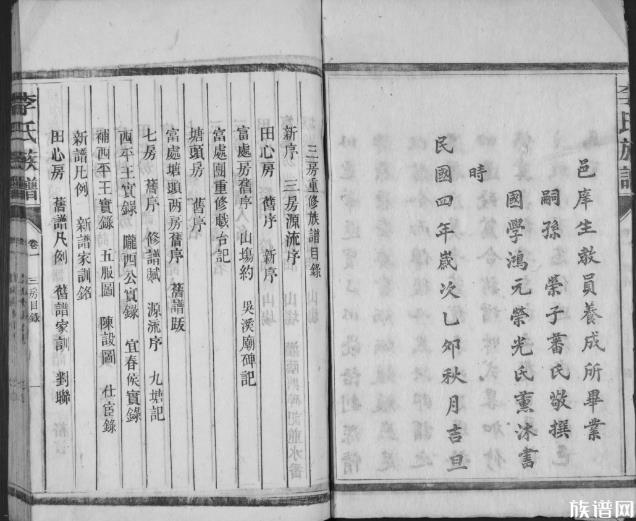 邑庠生教員養成所畢業
嗣孫 榮子蕃氏敬撰
國學鴻元榮光氏薰沐書
時
民國四年歲次乙卯秋月吉旦
李氏族譜
三房重修族譜目錄
新序 三房源流序
田心房 舊序 新序
富處房舊序 山塲約 吳溪廟碑記
富處團重修戲台記
塘頭房 舊序
富處塘頭两房舊序 舊譜跋
七房 舊序 修譜賦 源流序 九塘記
西平王實錄 隴西公實錄 宜春侯實錄
補西平王實錄 五服圖 陳設圖 仕宦錄
新譜凡例 新譜家訓銘
田心房 舊譜凡例 舊譜家訓 對聯
李氏族譜 卷一 三房目錄 一
族谱网